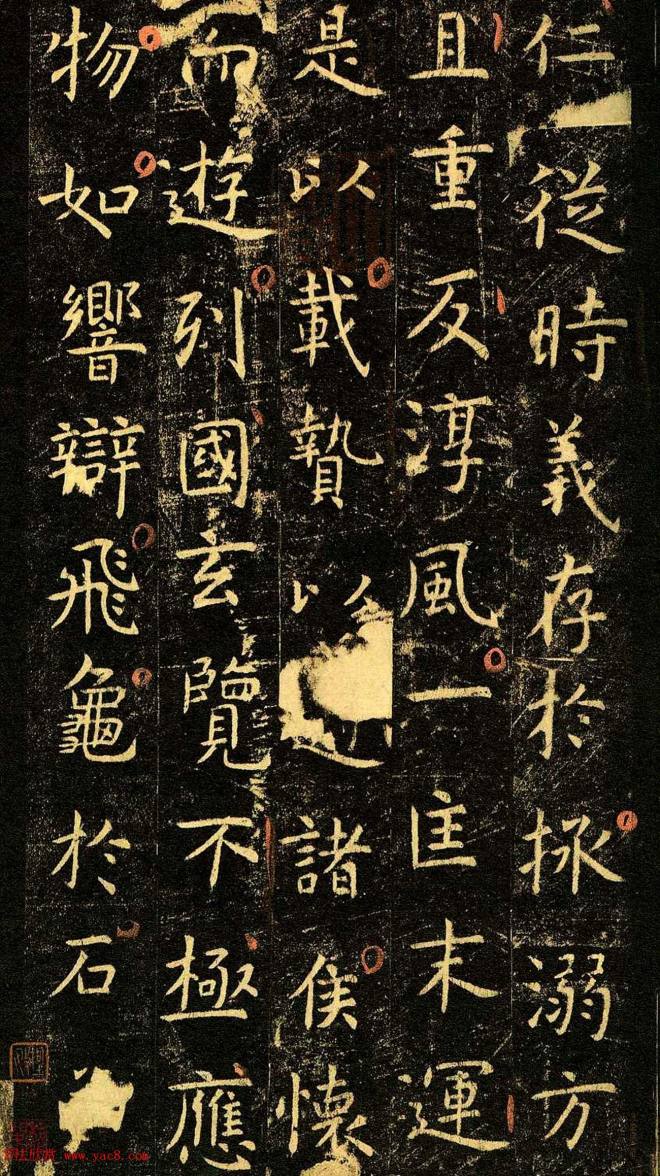 仁從時義存於拯溺方
且重反淳風一匡末運
是以載贄以諸侯懷
而遊列國玄覽不極應
物如響辯飛龜於石
www.yac8.com